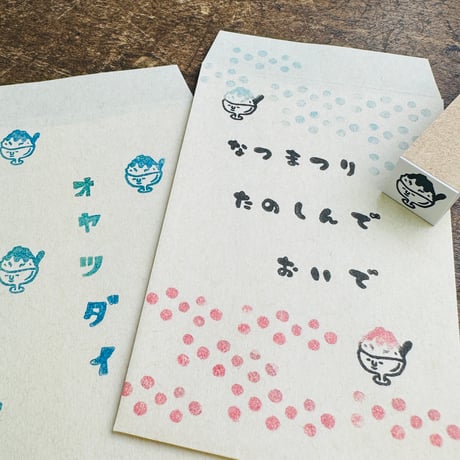 オヤツダイ
なつまつり
たのしんで
おいで